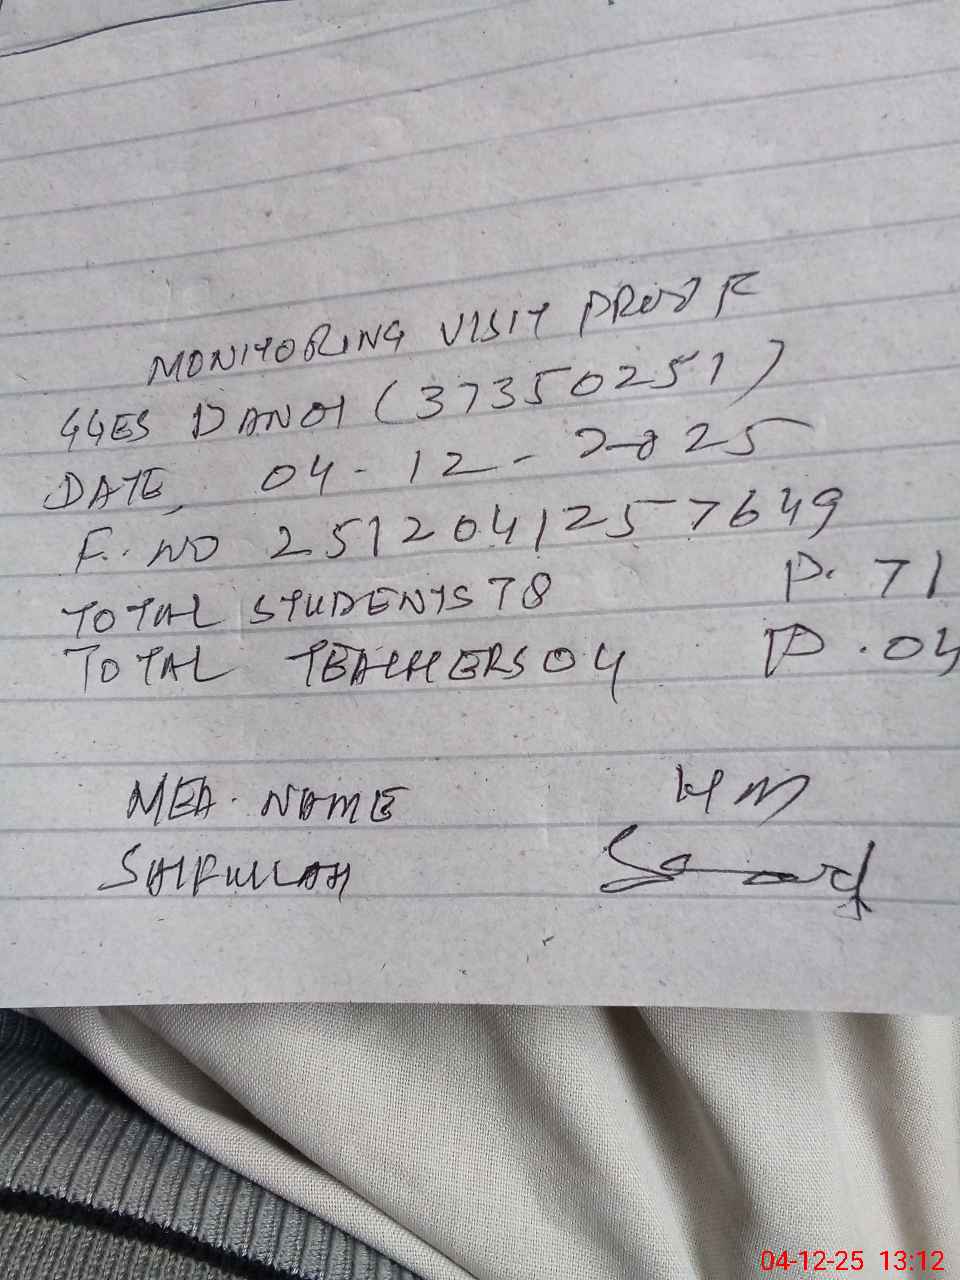 MONITORING VISIT PROOF
GGES DANOI (37350251)
DATE, 04-12-2025
F. NO 2512041257649
TOTAL STUDENTS 78 P. 71
TOTAL TEACHERS 04 P. 04
MEA. NAME HM
SAIFULLAH
04-12-25 13:12